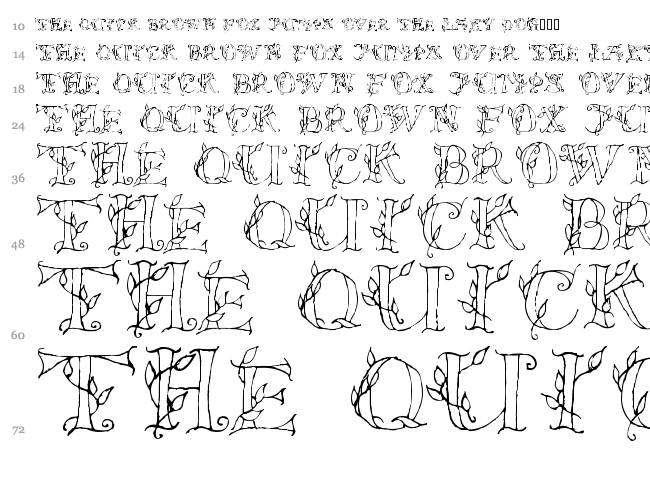 10 THE QUICK BROWN FOX JUMPS OVER THE LAZY DOG
14 THE QUICK BROWN FOX JUMPS OVER THE LAZY
18 THE QUICK BROWN FOX JUMPS OVE
24 THE QUICK BROWN FOX JU
36 THE QUICK BROWN
48 THE QUICK BR
60 THE QUICK
72 THE QUI